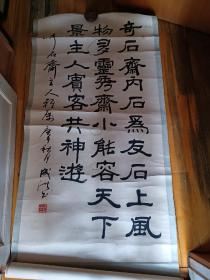 奇石齋內石爲友石上風
物多靈秀齋小能容天下
景主人賓客共神遊
奇石齋主人雅屬